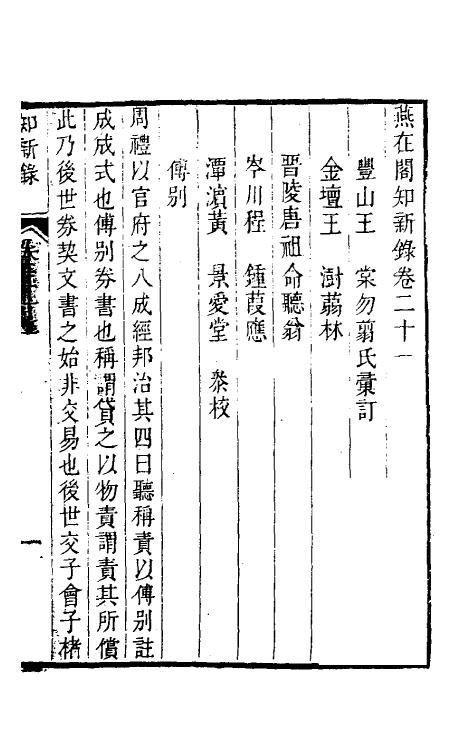 燕在閣知新錄卷二十一
豐山王 棠勿翦氏彙訂
金壇王 澍蒻林
晋陵唐祖命聽翁
岑川程 鍾葭應
潭濱黃 景愛堂 叅校
傅别
周禮以官府之八成經邦治其四曰聽稱責以傅别註
成成式也傅别券書也稱謂貸之以物責謂責其所償
此乃後世券契文書之始非交易也後世交子會子楮
知新錄
一